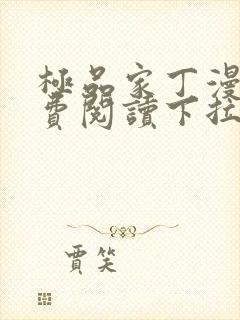 極品家丁漫
費閱讀下拉
賈笑